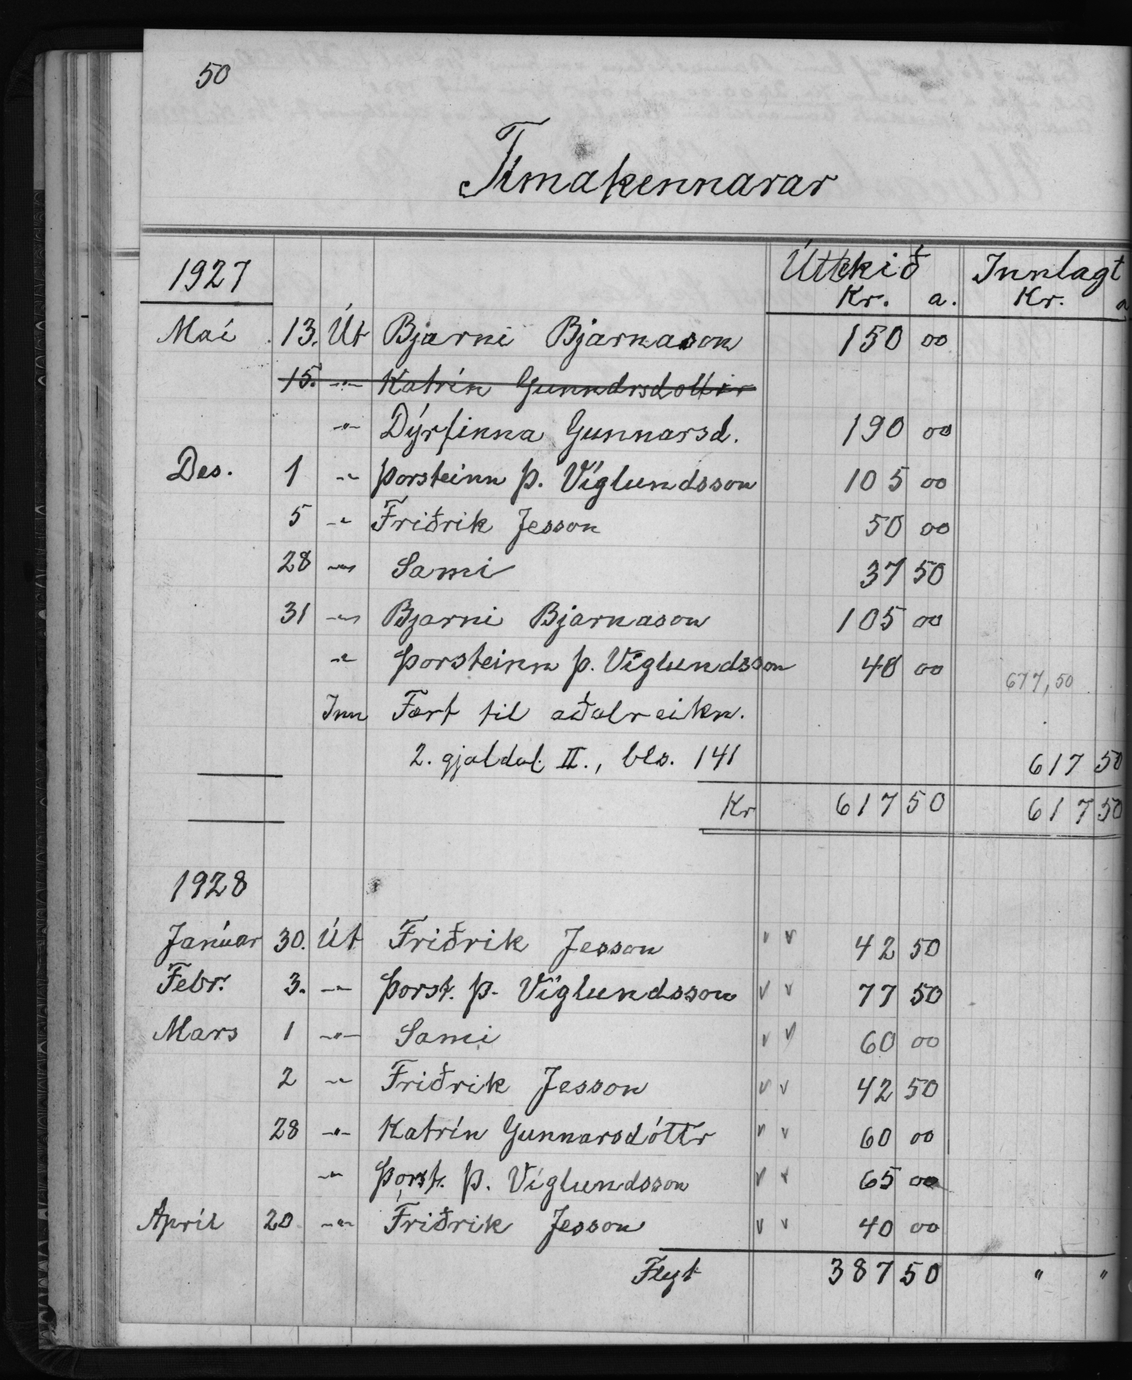 50
Tímakennarar
1927 Úttekið Innlagt
Kr. a. Kr. a
Maí 13. Út Bjarni Bjarnason 150 00
15. -"- Katrín Gunnarsdóttir
-"- Dýrfinna Gunnarsd. 190 00
Des. 1 -"- Þorsteinn Þ. Víglundsson 105 00
5 -"- Friðrik Jesson 50 00
28 -"- Sami 37 50
31 -"- Bjarni Bjarnason 105 00
-"- Þorsteinn Þ. Víglundsson 40 00
677,50
Inn Fært til aðalreikn.
2. gjaldal. II., bls. 141 617 50
Kr 617 50 617 50
1928
Janúar 30. Út Friðrik Jesson 42 50
Febr. 3. -"- Þorst. Þ. Víglundsson 77 50
Mars 1 -"- Sami 60 00
2 -"- Friðrik Jesson 42 50
28 -"- Katrín Gunnarsdóttr 60 00
-"- Þorst. Þ. Víglundsson 65 00
Apríl 20 -"- Friðrik Jesson 40 00
Flyt 387 50 " "